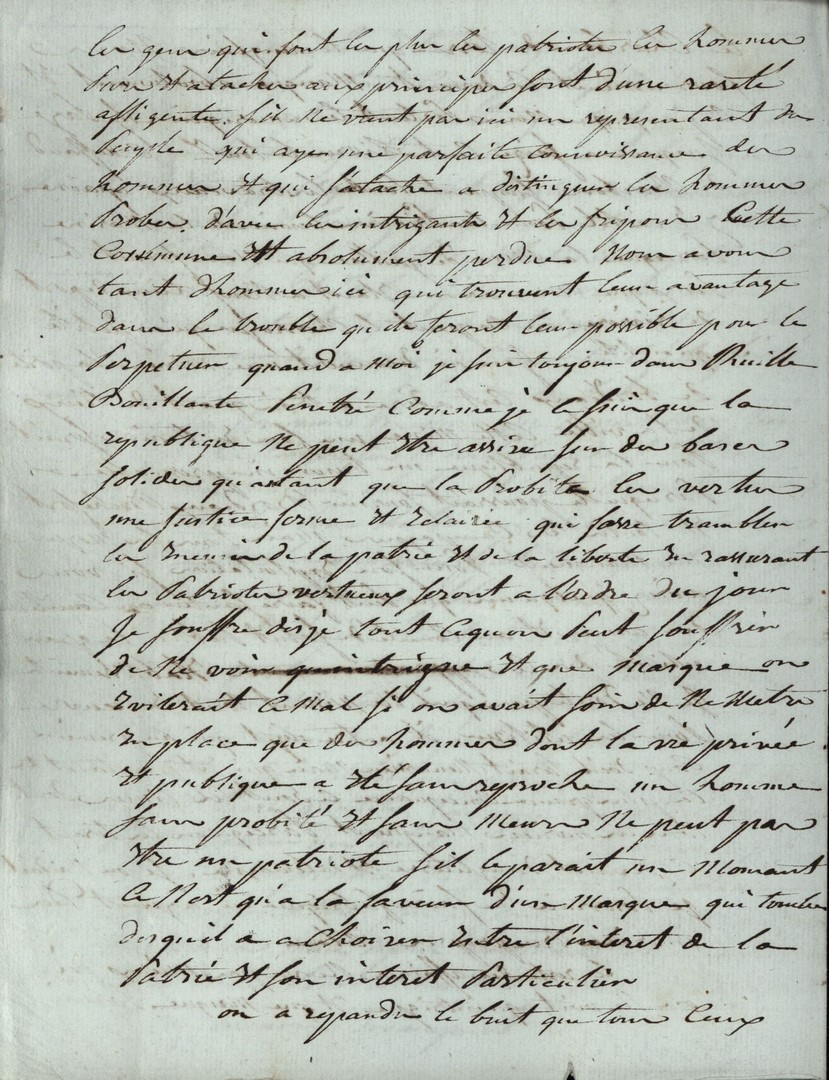 les gens qui font les plus les patriotes les hommes
purs et ataches aux principes sont d'une rareté
affligente. s'il ne vient pas ici un representant du
peuple qui aye une parfaite connoissance des
hommes et qui s'atache a distinguer les hommes
probes, d'avec les intrigants et les fripons Cette
Commune est absolument perdue Nous avons
tant d'hommes ici qui trouvent leur avantage
dans le trouble qu'ils feront leur possible pour le
perpetuer quand a moi je suis toujours dans l'huille
Bouillante Penetré Comme je le suis que la
republique ne peut etre assise sur des bases
solides qu'autant que la Probité les vertus
une justice ferme et Eclairée qui fasse trambler
les Enemis de la patrie et de la liberté En rassurant
les Patriotes vertueux seront a l'ordre du jour
Je souffre disje tout cequon Peut souffrir
de ne voir quintrigue et que masque on
Eviterait ce mal si on avait soin de ne metre
En place que des hommes dont la vie privée
et publique a eté sans reproche un homme
sans probité et sans meurs ne peut pas
etre un patriote s'il le parait un momant
ce n'est qu'a la faveur d'un masque qui tombe
desquil a a Choisir Entre l'interet de la
Patrie et son interet Particulier
on a repandu le bruit que tous Ceux